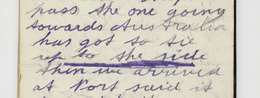 pass the one going
towards Australia
has got to tie
up to the side
then we arrived
at Port said it